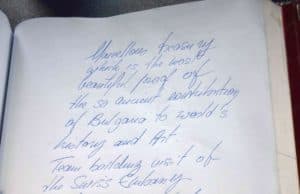 Marvellous treasury
which is the most
beautiful proof of
the so ancient contribution
of Bulgaria to world's
history and Art
Team building visit of
the Swiss Embassy